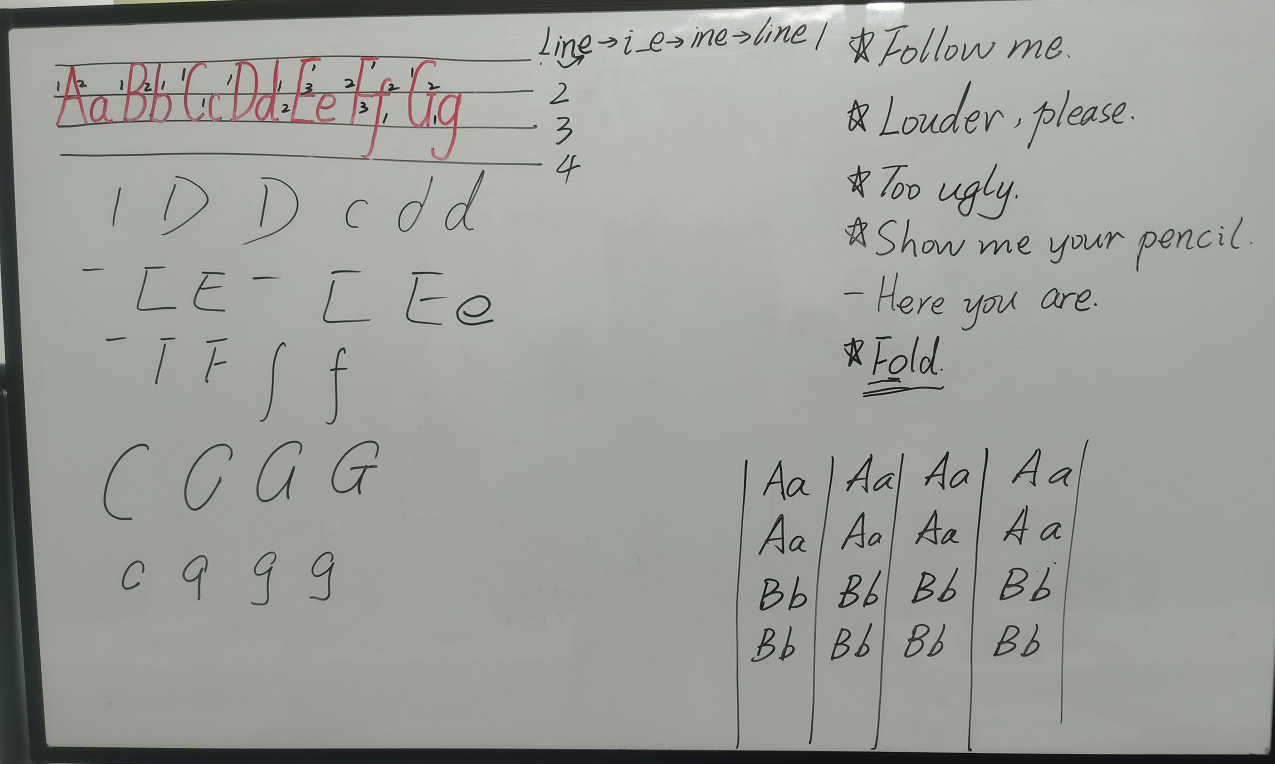 Line→i_e→ine→line 1
Aa Bb Cc Dd Ee Ff Gg
2
3
4
l D D c d d
- [ E - [ E e
- T F ʃ f
C C G G
c q g g
☆ Follow me.
☆ Louder, please.
☆ Too ugly.
☆ Show me your pencil.
- Here you are.
☆ Fold.
Aa Aa Aa Aa
Aa Aa Aa Aa
Bb Bb Bb Bb
Bb Bb Bb Bb